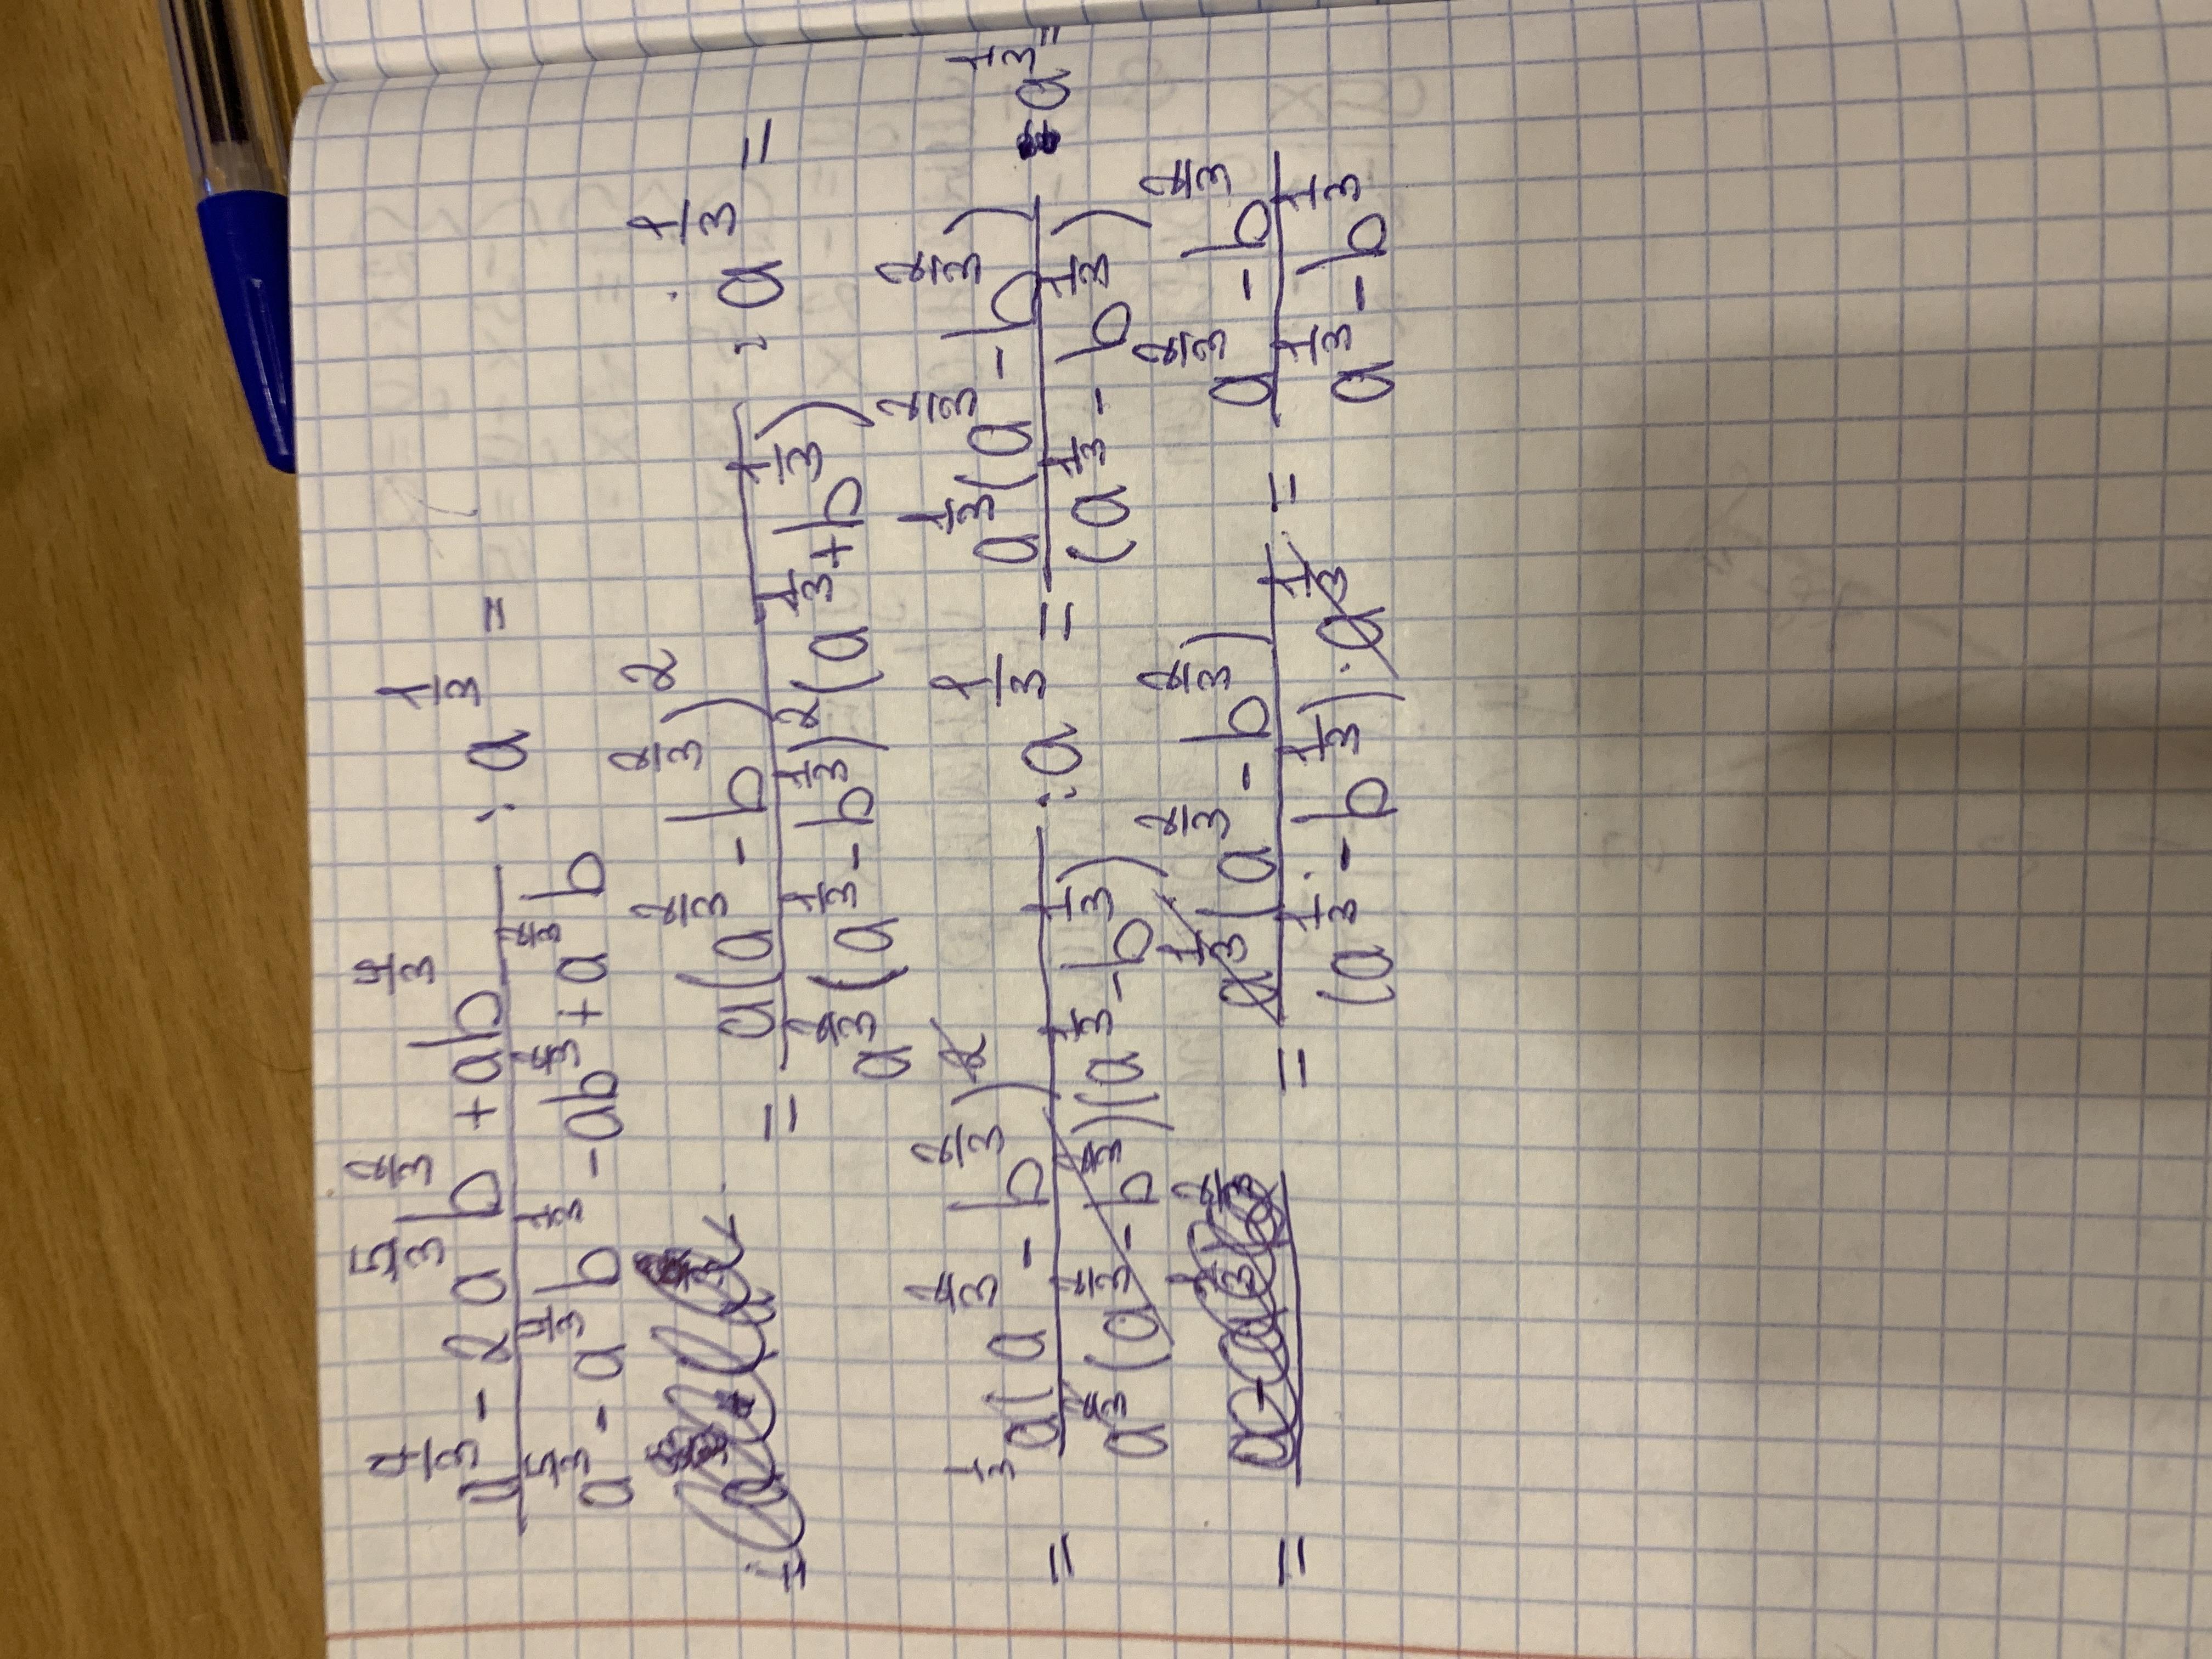 a^(4/3) - 2a^(5/3)b^(2/3) + ab^(4/3) / a^(5/3) - a^(4/3)b^(1/3) - ab^(2/3) + a^(2/3)b : a^(1/3) =
= a(a^(2/3) - b^(2/3))^2 / a^(2/3)(a^(1/3) - b^(1/3))^2(a^(1/3) + b^(1/3)) : a^(1/3) =
= a^(1/3)(a^(2/3) - b^(2/3))^2 / a^(2/3)(a^(2/3) - b^(2/3))(a^(1/3) - b^(1/3)) : a^(1/3) = a^(1/3)(a^(2/3) - b^(2/3)) / (a^(1/3) - b^(1/3)) : a^(1/3) =
= = a^(1/3)(a^(2/3) - b^(2/3)) / (a^(1/3) - b^(1/3)) · a^(1/3) = a^(2/3) - b^(2/3) / a^(1/3) - b^(1/3)